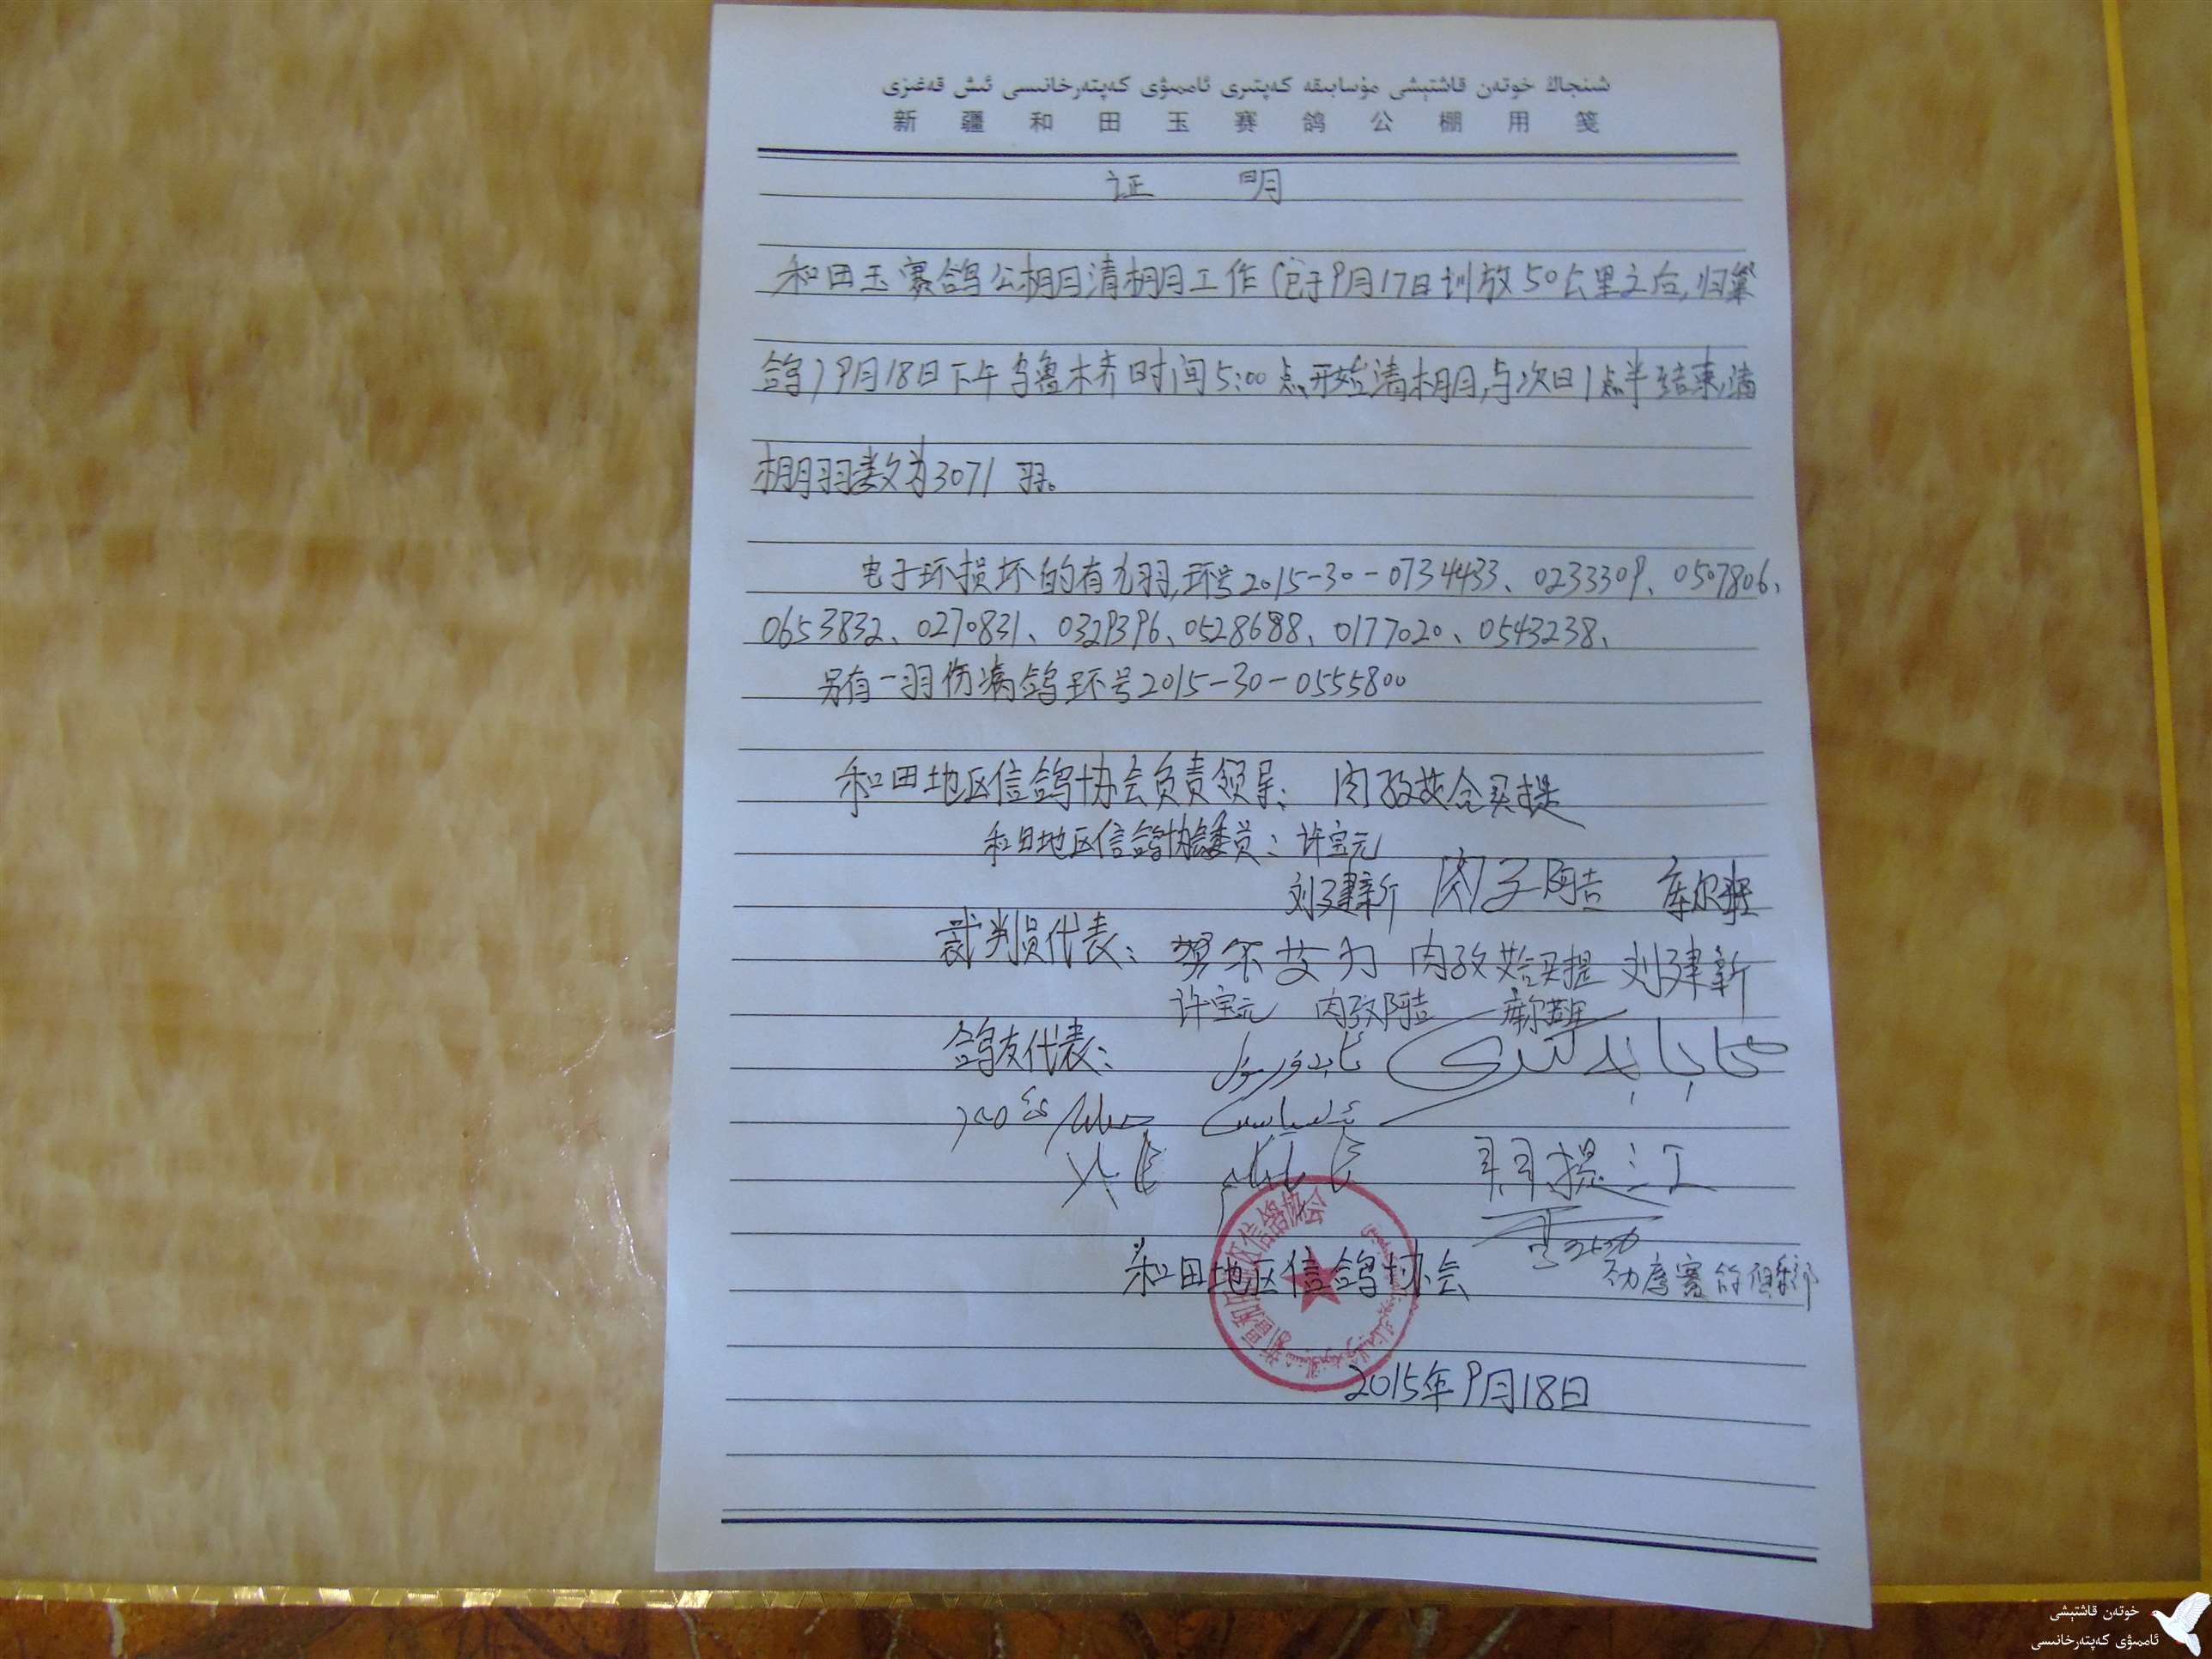 شىنجاڭ خوتەن قاشتېشى مۇسابىقە كەپتىرى ئاممىۋى كەپتەرخانىسى ئىش قەغىزى
新疆和田玉赛鸽公棚用笺
证 明
和田玉赛鸽公棚清棚工作(包于9月17日训放50公里之后,归巢
鸽)9月18日下午乌鲁木齐时间5:00点开始清棚,与次日1点半结束,清
棚羽数为3071羽。
电子环损坏的有九羽,环号2015-30-0734433、0233309、0507806、
0653832、0270831、0329396、0528688、0177020、0543238、
另有一羽伤病鸽环号2015-30-0555800
和田地区信鸽协会负责领导: 肉孜艾合买提
和田地区信鸽协会委员:许宝元
刘建新 肉子阿吉 库尔班
裁判员代表: 努尔艾力 肉孜 刘建新
许宝元 肉孜阿吉
鸽友代表:
和田地区信鸽协会
2015年9月18日
خوتەن قاشتېشى
ئاممىۋى كەپتەرخانىسى